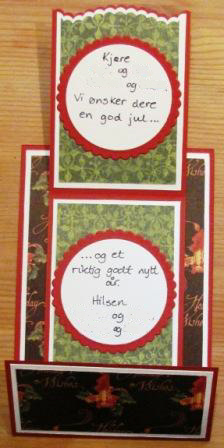 Kjære
og
og
Vi ønsker dere
en god jul...
...og et
riktig godt nytt
år.
Hilsen
og
og
Wishes